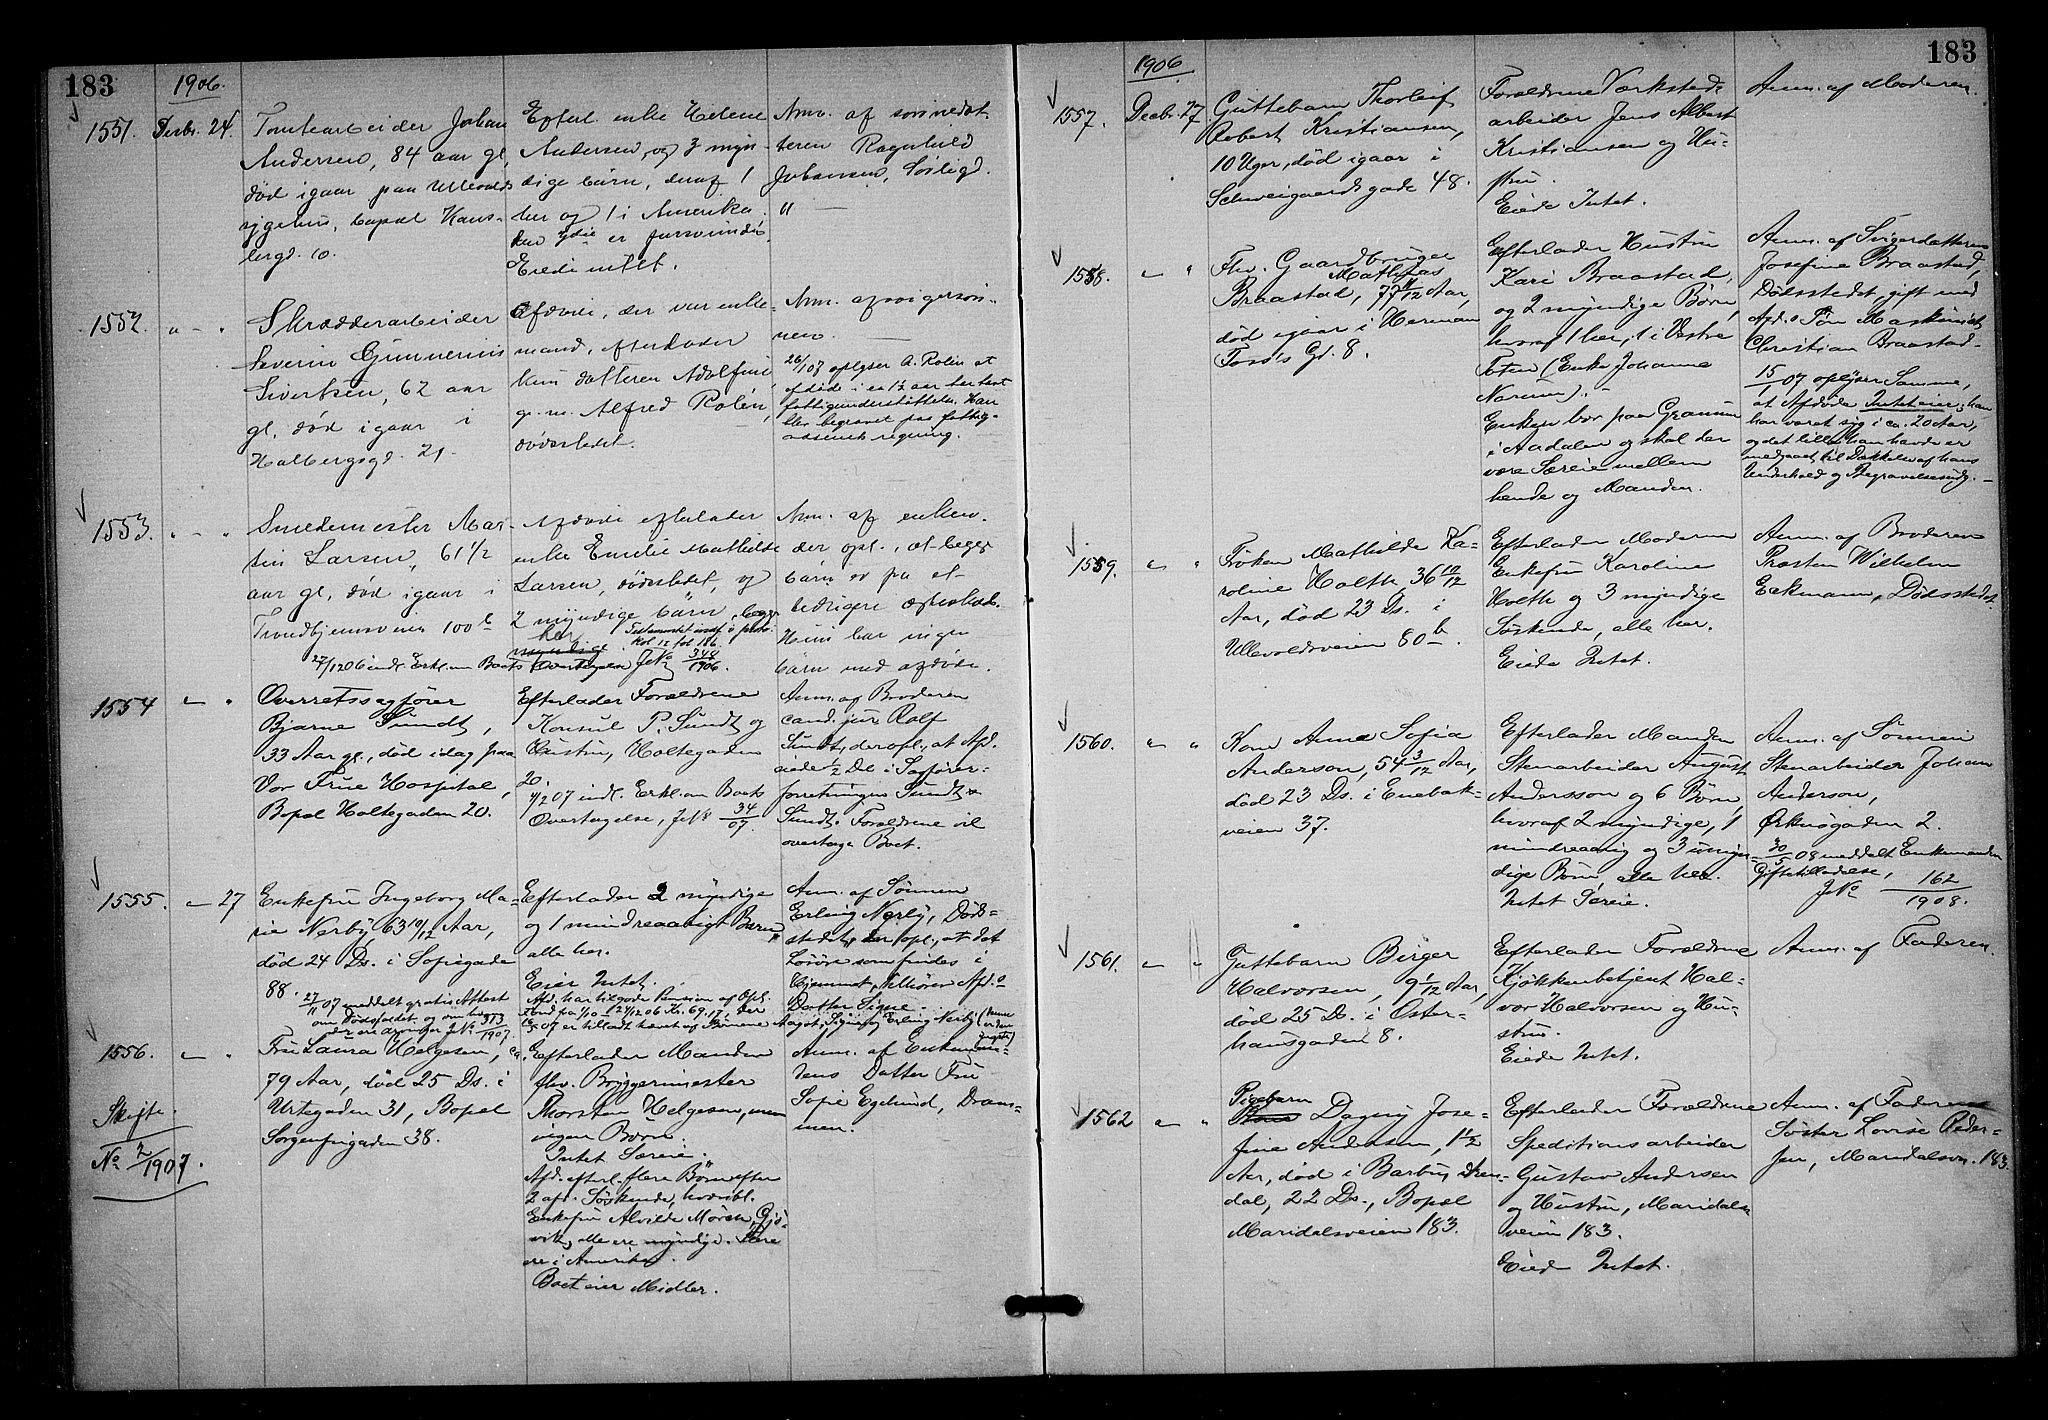 183
1906.
1551. Decbr. 24.
Tomtearbeider Johan
Andersen, 84 aar gl,
død igaar paa Ullevaals
sygehus, bopæl Hans-
bergd. 10.
Efterl. enke Helene
Andersen, og 3 myn-
dige børn, deraf 1
her og 1 i Amerika.
er forsvundet.
Eiede intet.
Anm. af sønnedat-
teren Ragnhild
Johansen,
1552. " - "
Skrædderarbeider
Severin Gunnerius
Sivertsen, 62 aar
gl, død igaar i
Holbergsgd. 21.
Afdøde, der var enke-
mand, efterlader
kun datteren Adolfine
g. m. Alfred Rolén,
dødsstedet.
Anm. af svigersøn-
nen.
26/1 07 oplyser A. Rolén at
afdøde i ca 1½ aar har havt
fattigunderstøttelse. Han
blev begravet paa fattig-
væsenets regning.
1553. " - "
Smedemester Mar-
tin Larsen, 61 1/2
aar gl, død igaar i
Trondhjemsveien 100 b
27/12 06 indl. Erkl. om Boets Overtagelse J.No 348/1906.
Afdøde efterlader
enke Emilie Mathilde
Larsen, dødsstedet, og
2 myndige børn, begge
her
Testamentet indf. i proto-
kol 12 fol 186
Anm. af enken.
der opl., at begge
børn er på et
tidligere ægteskab.
Hun har ingen
børn med afdøde.
1554 " "
Overretssagfører
Bjarne Sundt,
33 Aar gl., død idag paa
Vor Frue Hospital,
Bopæl Holtegaden 20.
Efterlader Forældrene
Konsul P. Sundt og
Hustru, Holtegaden
20.
1/2 07 indl. Erkl. om Boets
Overtagelse, J.No 34/07
Anm. af Broderen
cand. jur. Rolf
Sundt, der opl., at Afd.
eiede 1/2 Del i Sagfører-
forretningen Sundt &
Sundt. Forældrene vil
overtage Boet.
1555. " 27
Enkefru Ingeborg Ma-
rie Nerby 63 10/12 Aar,
død 24 Ds. i Sofiegade
88.
27/11 07 meddelt gratis Attest
om Dødsfaldet og om hvem
der ere arvinger J.No 373/1907.
Efterlader 2 myndige
og 1 mindreaarigt Barn,
alle her.
Eier Intet.
Afd. har tilgode Pension af Opl.
fond fra 1/10 - 24/12 06 Kr. 69.17, der
07 er tilladt hævet af Børnene Aagot, Signe og Erling Nerby
Anm. af Sønnen
Erling Nerby, Døds-
stedet, der opl., at det
Løsøre som findes i
Hjemmet, tilhører Afd.s
Datter Signe.
1556. " "
Skifte
No 2/1907.
Fru Laura Helgesen, ca.
79 Aar, død 25 Ds. i
Urtegaden 31, Bopæl
Sorgenfrigaden 38.
Efterlader Manden
fhv. Bryggerimester
Thorsten Helgesen, men
ingen Børn.
Intet Særeie.
Afd. efterl. flere Børn efter
2 afd. Søskende, hvoribl.
Enkefru Alvilde Mørch, Gjø-
vik, alle ere myndige. Flere
ere i Amerika.
Boet eier Midler.
Anm. af Enkeman-
dens Datter Fru
Sofie Egelund, Dram-
men.
183
1906
1557. Decbr. 27
Guttebarn Thorleif
Robert Kristiansen,
10 Uger, død igaar i
Schweigaardsgade 48.
Forældrene Værksteds-
arbeider Jens Albert
Kristiansen og Hu-
stru.
Eiede Intet.
Anm. af Moderen.
1558. " "
Fhv. Gaardbruger
Mathias
Braastad, 77 11/12 Aar,
død igaar i Herman
Foss's Gd. 8.
Efterlader Hustru
Kari Braastad,
og 2 myndige Børn,
hvoraf 1 her, 1 i Vestre
Toten (Enke Johanne
Narum).
Enken bor paa Granum
i Aadalen og skal der
være Særeie mellem
hende og Manden.
Anm. af Svigerdatteren
Josefine Braastad,
Dødsstedet, gift med
Afd.s Søn Maskinist
Christian Braastad.
15/1 07 oplyser Samme,
at Afdøde Intet eier, han
har været syg i ca. 20 Aar,
og det lille han havde er
medgaaet til Dækkelse af hans
Underhold og Begravelsesudg.
1559. " "
Frøken Mathilde Ka-
roline Holth 36 10/12
Aar, død 23 Ds. i
Ullevoldsveien 80 b.
Efterlader Moderen
Enkefru Karoline
Holth og 3 myndige
Søskende, alle her.
Eiede Intet.
Anm. af Broderen
Thorsten Wilhelm
Eckmann, Dødsstedet.
1560. " "
Kone Anna Sofia
Anderson, 54 3/12 Aar,
død 23 Ds. i Enebak-
veien 37.
Efterlader Manden
Stenarbeider August
Andersson og 6 Børn,
hvoraf 2 myndige, 1
mindreaarig og 3 umyn-
dige Børn alle her.
Intet Særeie.
Anm. af Sønnen
Stenarbeider Johan
Anderson,
Ørknøgaden 2.
30/5 08 meddelt Enkemanden
Giftetilladelse,
J.No 162/1908.
1561. " "
Guttebarn Birger
Halvorsen, 9 1/12 Aar,
død 25 Ds. i Oster-
hausgaden 8.
Efterlader Forældrene
Kjøkkenbetjent Hal-
vor Halvorsen og Hu-
stru.
Eiede Intet.
Anm. af Faderen.
1562 " "
Pigebarn
Dagny Jose-
fine Andersen, 1 1/2
Aar, død i Barbu, Aren-
dal, 22 Ds., Bopæl
Maridalsveien 183.
Efterlader Forældrene
Speditionsarbeider
Gustav Andersen
og Hustru, Maridals-
veien 183.
Eiede Intet.
Anm. af Faderens
Søster Lovise Peder-
sen, Maridalsv. 183.